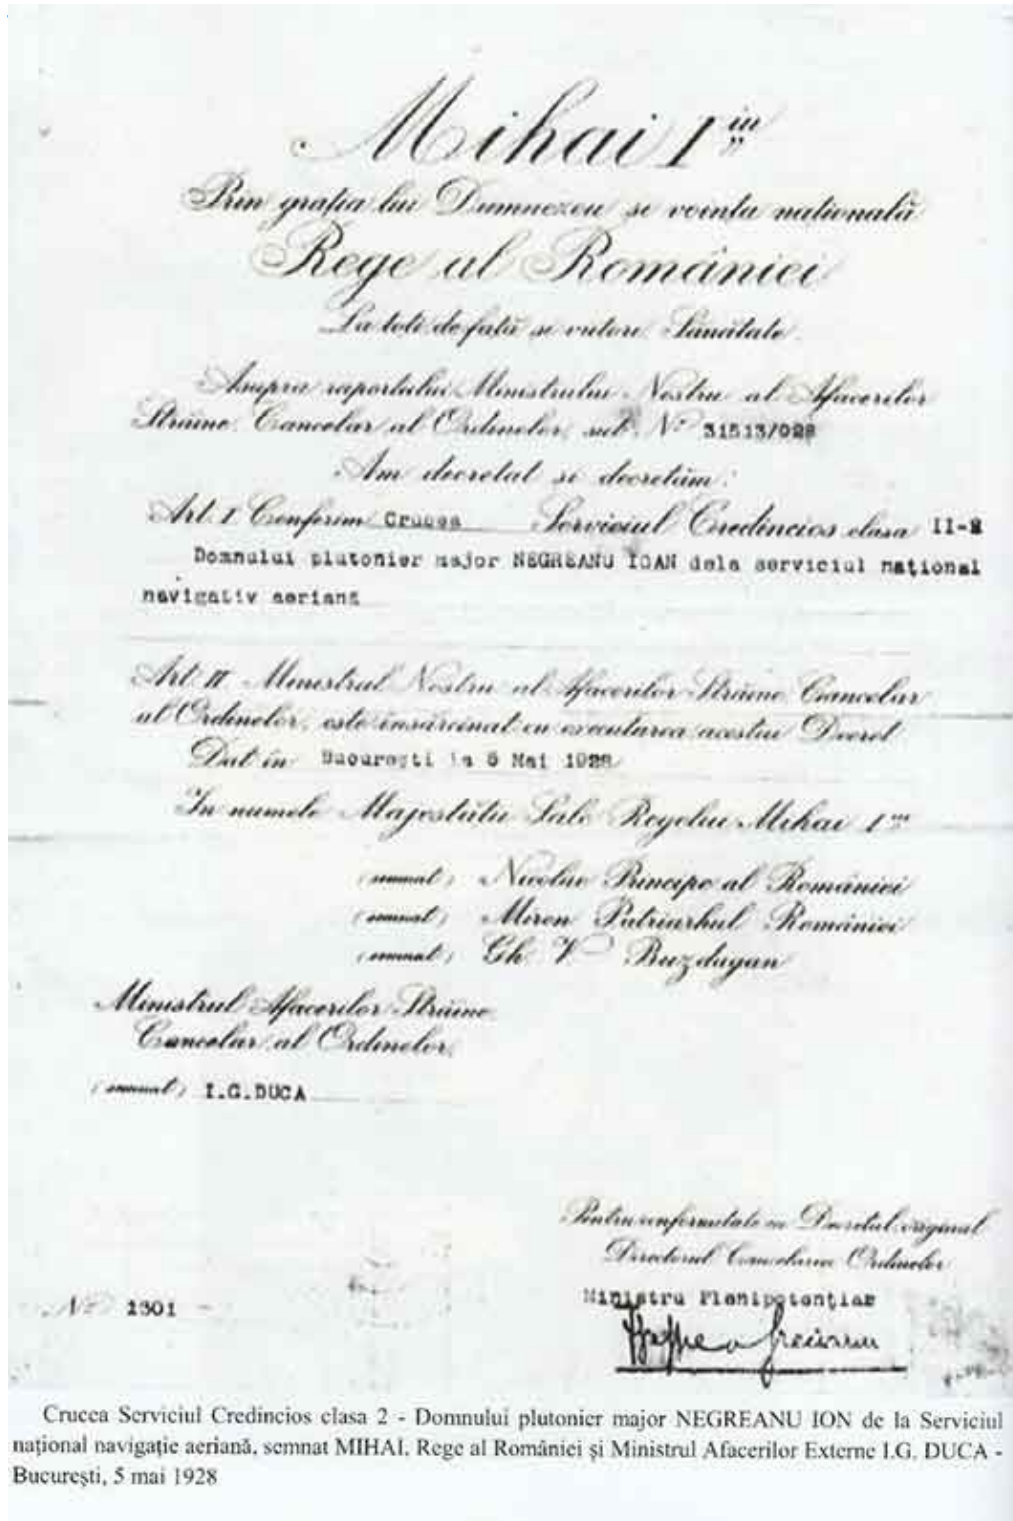 Mihai I iu
Prin grația lui Dumnezeu si vointa națională
Rege al României
La toti de față si viitori Sănătate.
Asupra raportului Ministrului Nostru al Afacerilor
Străine Cancelar al Ordinelor, sub No 31513/028
Am decretat si decretăm:
Art. I Conferim Crucea Serviciul Credincios clasa II-a
Domnului plutonier major NEGREANU IOAN dela serviciul național
navigativ aeriană
Art. II Ministrul Nostru al Afacerilor Străine Cancelar
al Ordinelor, este însărcinat cu executarea acestui Decret
Dat în București la 5 Mai 1928
In numele Majestății Sale Regelui Mihai I
(semnat) Nicolae Principe al României
(semnat) Miron Patriarhul României
(semnat) Gh. V. Buzdugan
Ministrul Afacerilor Străine
Cancelar al Ordinelor,
(semnat) I.G.DUCA
Pentru conformitate cu Decretul original
Directorul Cancelariei Ordinelor
Ministru Plenipotențiar
No 1301
Crucea Serviciul Credincios clasa 2 - Domnului plutonier major NEGREANU ION de la Serviciul
național navigație aeriană, semnat MIHAI, Rege al României și Ministrul Afacerilor Externe I.G. DUCA -
București, 5 mai 1928